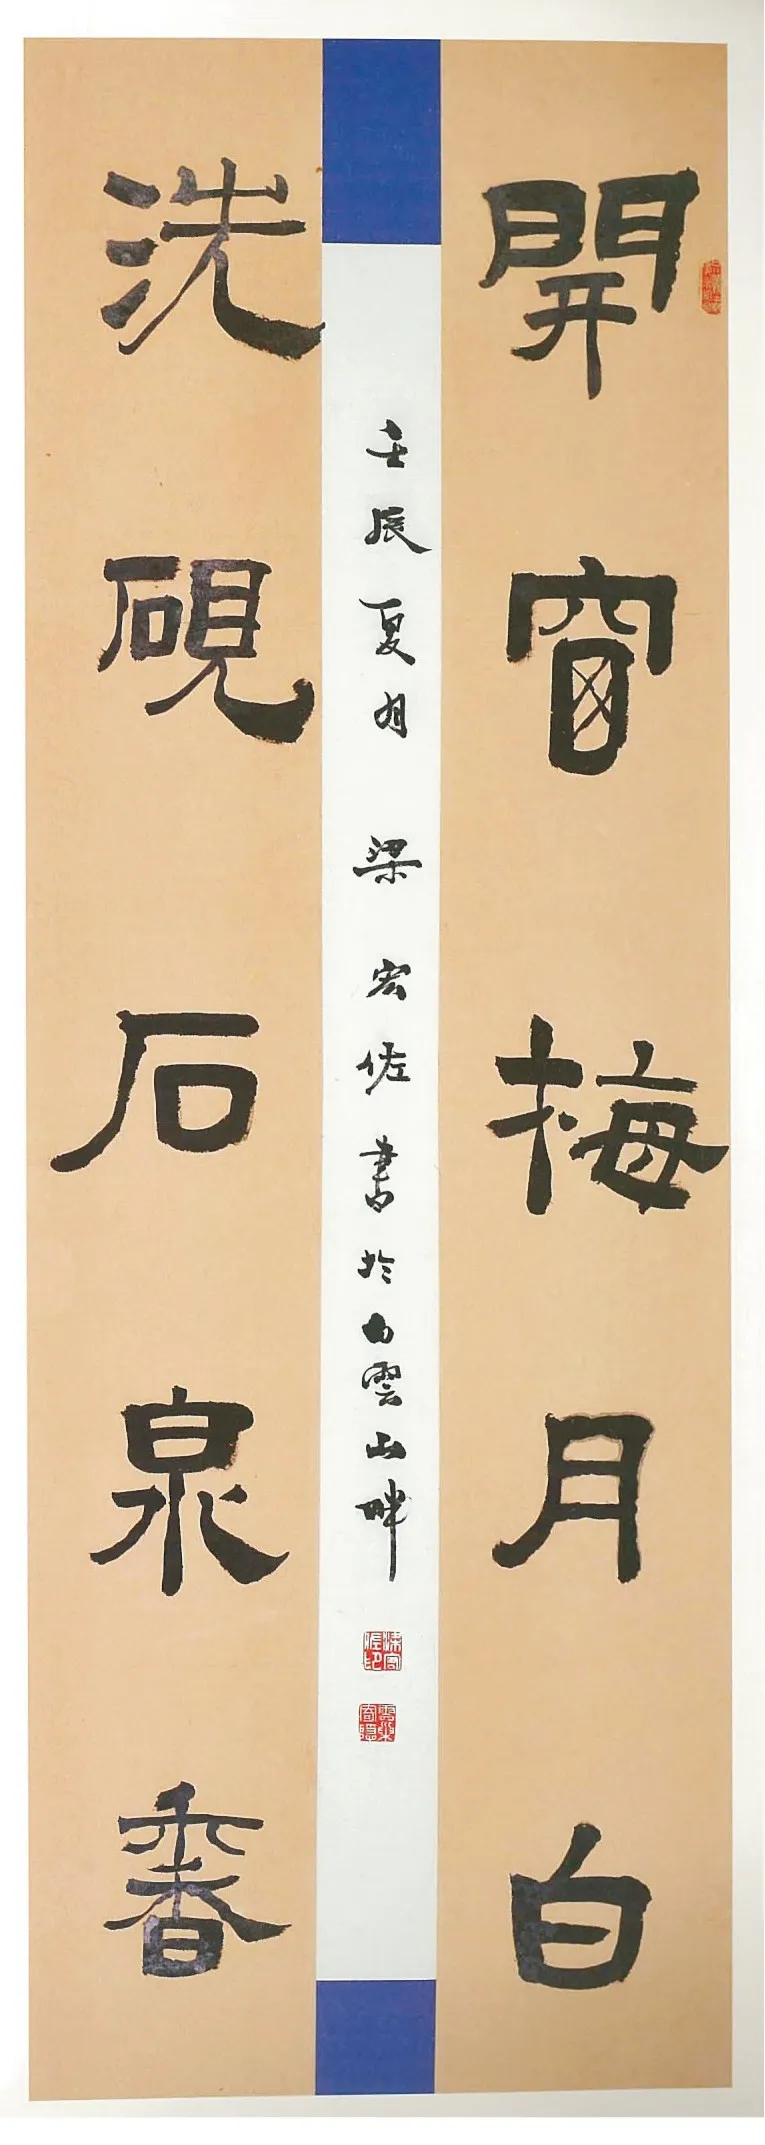 開窗梅月白
壬辰夏月 梁宏佐書於白雲山畔
梁宏佐印
洗硯石泉香